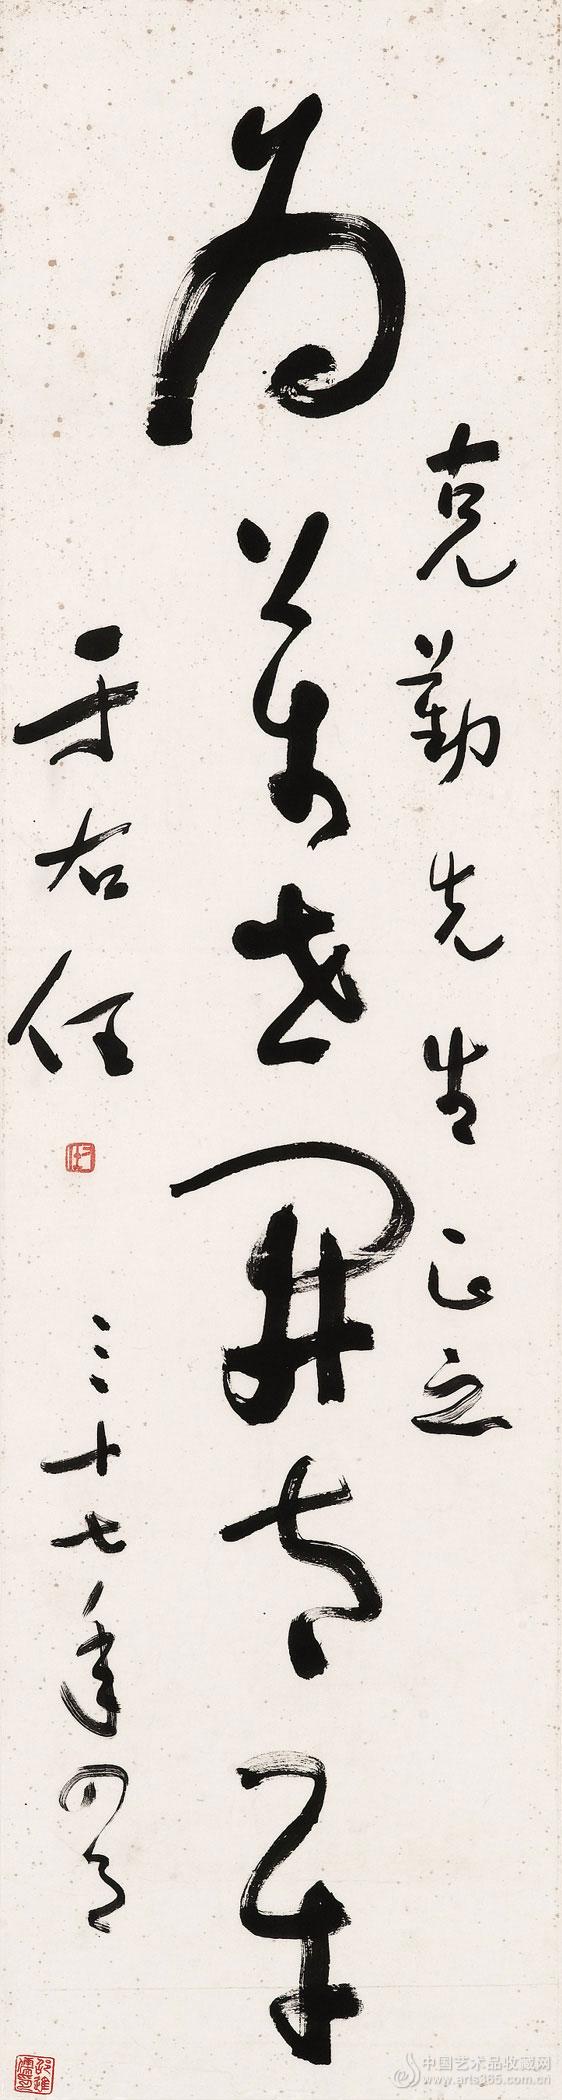 克勤先生正之
为万世开太平
于右任
三十七年四月
中国艺术品收藏网
www.arts365.com.cn